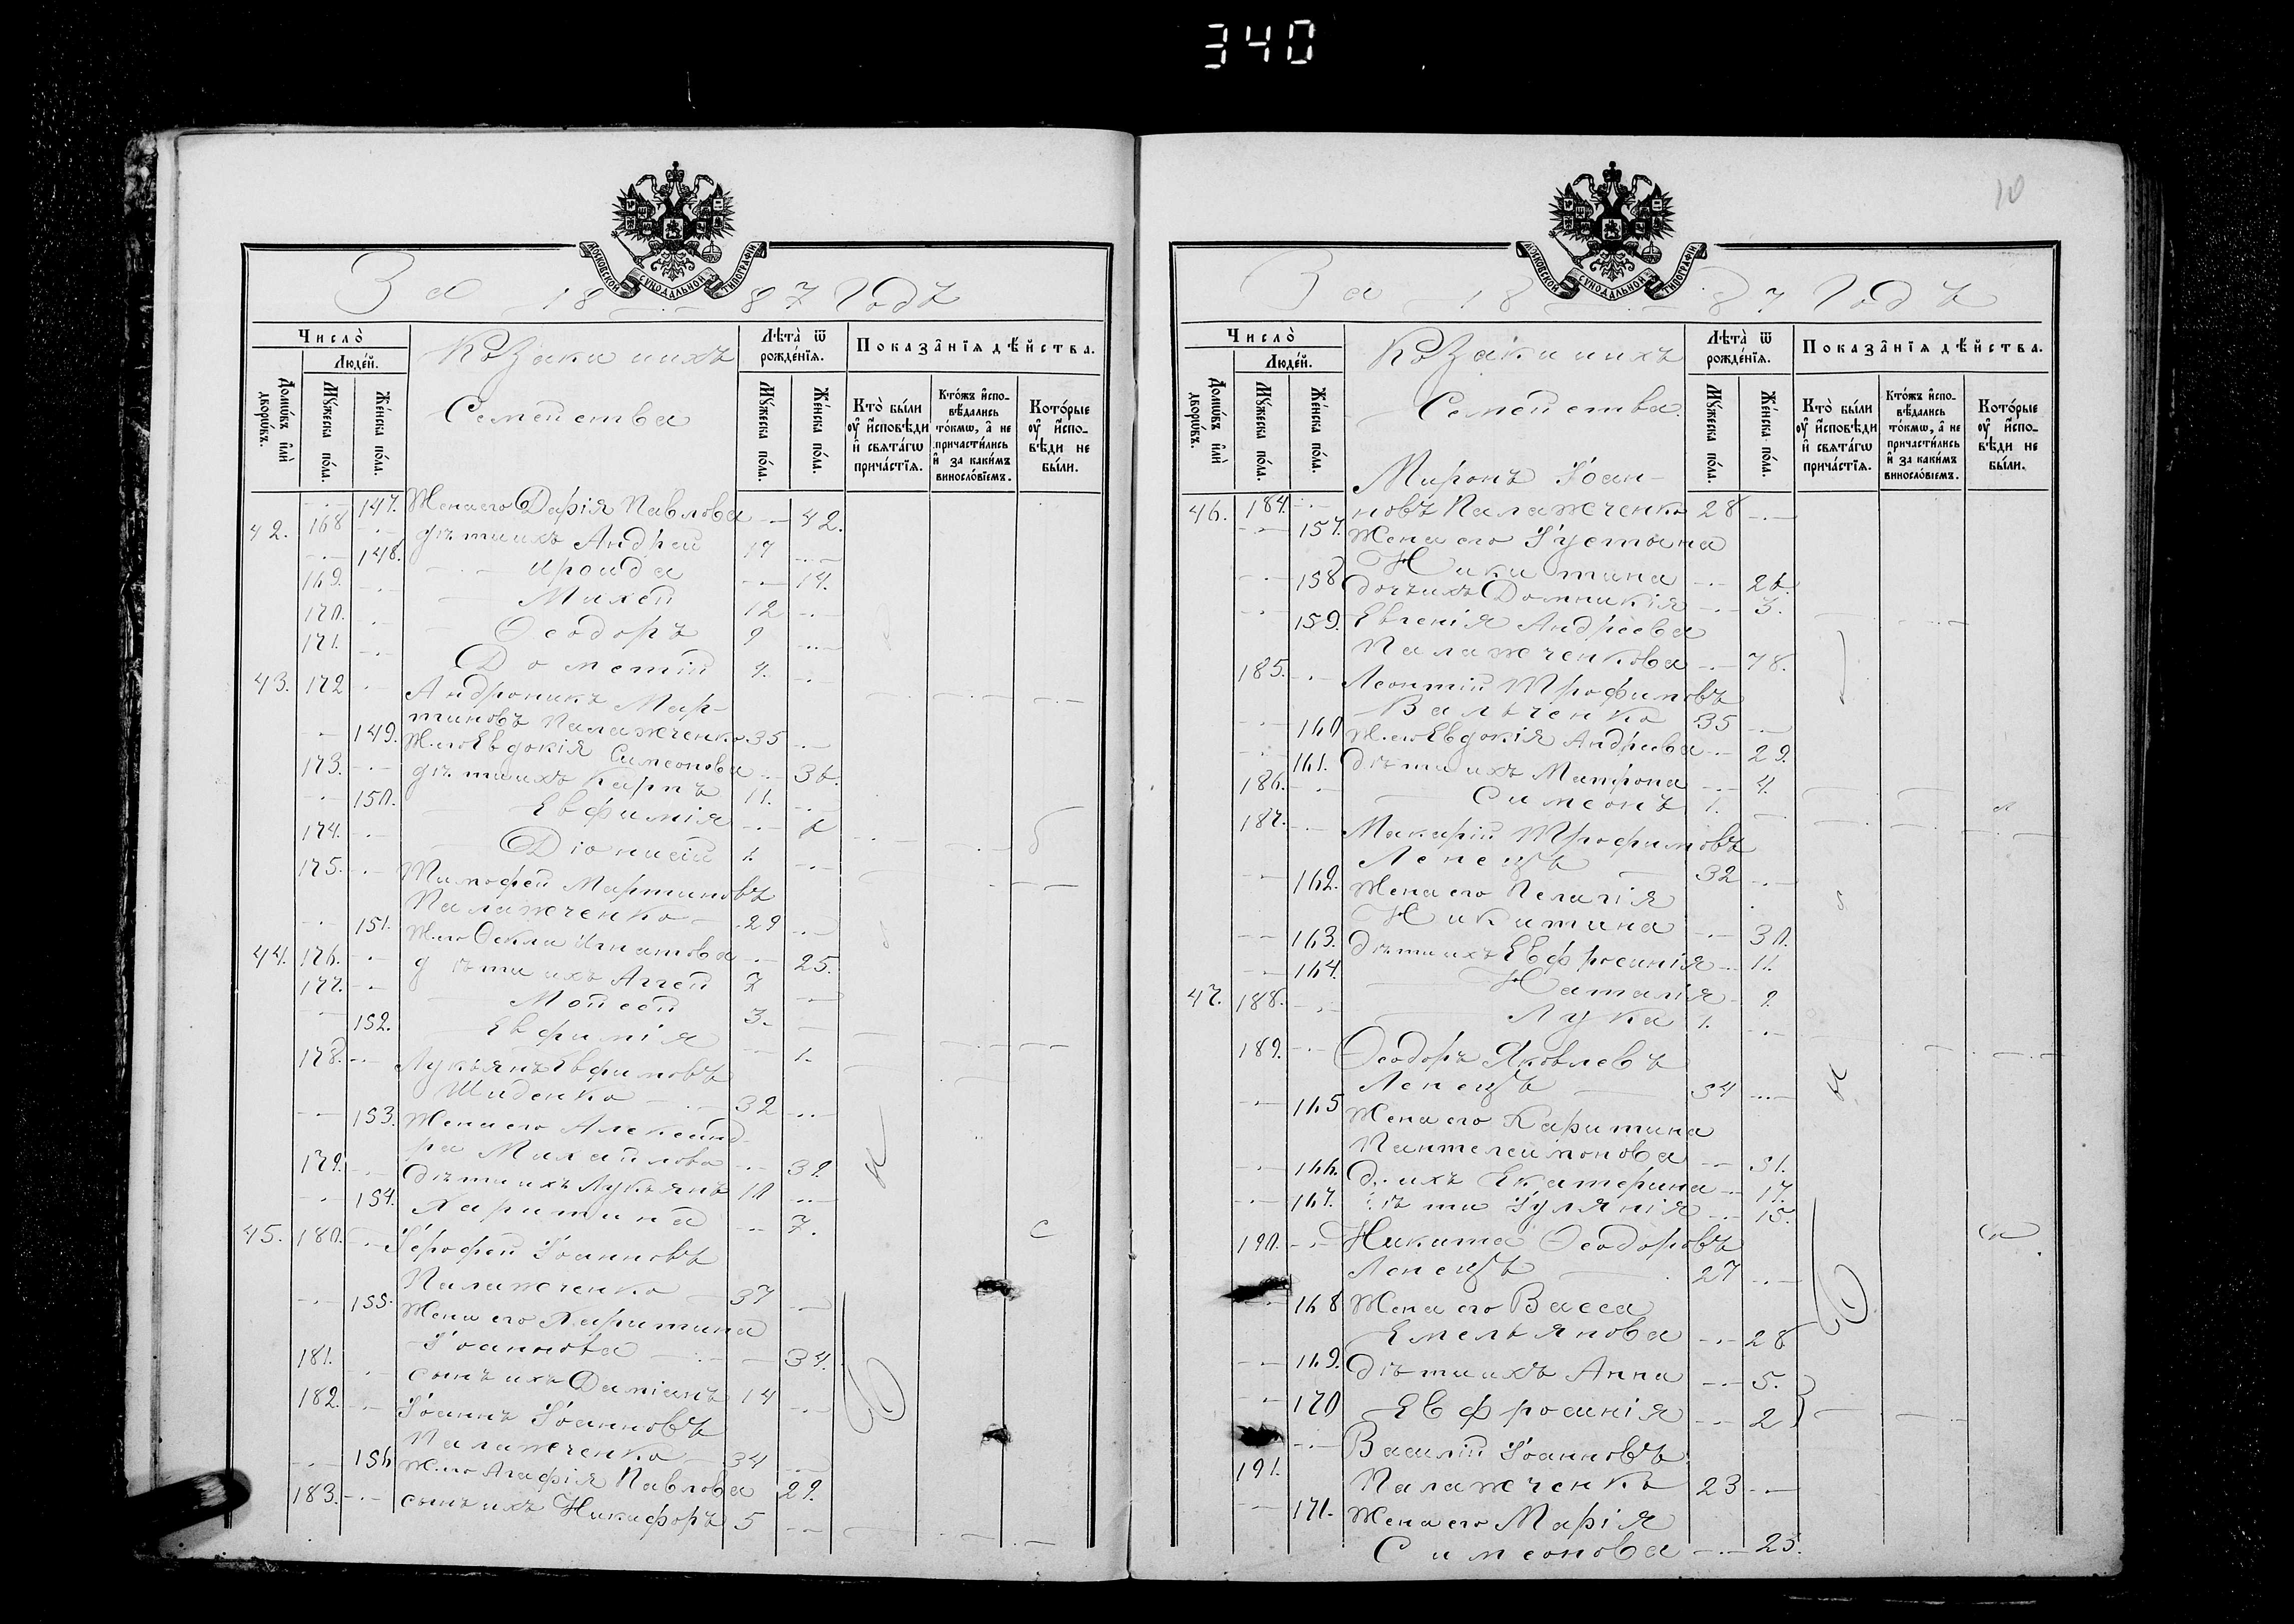 340
МОСКОВСКОЙ СѴНОДАЛЬНОЙ ТИПОГРАФІИ
За 18 87 годъ
Число̀
Люде́й.
Домѡ́въ и҆лѝ дворѡ́въ.
Мꙋ́жеска по́ла.
Же́нска по́ла.
Козаки и ихъ
Семейства
Лѣта̀ ѿ рожде́нїѧ.
Мꙋ́жеска по́ла.
Же́нска по́ла.
Показа̑нїѧ дѣ́йства.
Кто̀ бы́ли ᲂу҆ и҆́сповѣди и҆ свѧта́гѡ прича́стїѧ.
Кто́жъ и҆спо- вѣ́дались то́кмѡ, а҆ не причасти́лись и҆ за каки́мъ виносло́вїемъ.
Кото́рые ᲂу҆ и҆́спо- вѣди не бы́ли.
147. Жена его Дарія Павлова 42.
42. 168 дѣти ихъ Андрей 17
148. Ироида 14.
169. Михей 12
170. Ѳеодоръ 9
171. Дометій 4.
43. 172 Андроникъ Мар-
тиновъ Палажченко 35
149. Ж. его Евдокія Симеонова 36.
173. дѣти ихъ Карпъ 11.
150. Евфимія 6
174. Діонисій 1.
175. Тимофей Мартиновъ
Палажченко 29
151. Ж. его Ѳекла Игнатова 25.
44. 176. дѣти ихъ Аггей 7
177. Мойсей 3.
152. Евфимія 1.
178. Лукьянъ Евфимовъ
Шиденко 32
153. Жена его Александ-
ра Михайлова 32.
179. дѣти ихъ Лукьянъ 10
154. Харитина 7.
45. 180. Іерофей Іоанновъ
Палажченко 37
155. Жена его Харитина
Іоаннова 34.
181. сынъ ихъ Даміанъ 14
182. Іоаннъ Іоанновъ
Палажченко 34
156 Ж. его Агафія Павлова 29.
183. сынъ ихъ Никифоръ 5
10
МОСКОВСКОЙ СѴНОДАЛЬНОЙ ТИПОГРАФІИ
За 18 87 годъ
Число̀
Люде́й.
Домѡ́въ и҆лѝ дворѡ́въ.
Мꙋ́жеска по́ла.
Же́нска по́ла.
Козаки и ихъ
Семейства.
Лѣта̀ ѿ рожде́нїѧ.
Мꙋ́жеска по́ла.
Же́нска по́ла.
Показа̑нїѧ дѣ́йства.
Кто̀ бы́ли ᲂу҆ и҆́сповѣди и҆ свѧта́гѡ прича́стїѧ.
Кто́жъ и҆спо- вѣ́дались то́кмѡ, а҆ не причасти́лись и҆ за каки́мъ виносло́вїемъ.
Кото́рые ᲂу҆ и҆́спо- вѣди не бы́ли.
Миронъ Іоан-
46. 184. новъ Палажченко 28
157. Жена его Іустина
Никитина 26.
158 дочь ихъ Домникія 3.
159. Евгенія Андреева
Палажченкова 78.
185. Леонтій Трофимовъ
Вальченко 35
160 Ж. его Евдокія Андреева 29.
161. дѣти ихъ Матрона 4.
186. Симеонъ 1.
187. Макарій Трофимовъ
Ленецъ 32
162. Жена его Пелагія
Никитина 30.
163. дѣти ихъ Евфросинія 11.
164. Наталія 9.
47. 188. Лука 1.
189. Ѳеодоръ Яковлевъ
Ленецъ 54
165 Жена его Харитина
Пантелеймонова 51.
166. д. ихъ Екатерина 17.
167. Іуліянія 15.
190. Никита Ѳеодоровъ
Ленецъ 27
168 Жена его Васса
Емельянова 28
169. дѣти ихъ Анна 5.
170 Евфросинія 2
191. Василій Іоанновъ
Палажченко 23
171. Жена его Марія
Симеонова 25.